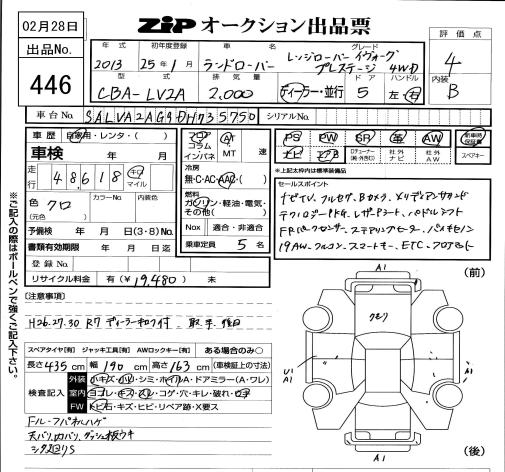 02月28日
ZIP オークション出品票
出品No.
446
評価点
4
内装
B
年式 初年度登録 車名 グレード
2013 25年1月 ランドローバー レンジローバー イヴォーグ
プレステージ 4WD
型式 排気量 ドア ハンドル
CBA-LV2A 2,000 ディーラー・並行 5 左・右
車台No. SALVA2AG9DH735750 シリアルNo.
車歴 自家用・レンタ・( )
車検 年 月
走行 48618 キロ マイル
色 クロ
(元色)
カラーNo. 内装色
予備検 年 月 日(3・8)No.
書類有効期限 年 月 日迄
登録No.
リサイクル料金 有(¥19,480)
フロア コラム インパネ
AT MT 速
冷房
無・C・AC・AAC・( )
燃料
ガソリン・軽油・電気・
その他( )
Nox 適合・非適合
乗車定員 5 名
PS PW SR 革 AW 新車時保証書
ナビ エアB Dチューナー(純・外含む) 社外ナビ 社外AW スペアキー
※上記太枠内は標準装備品
セールスポイント
ナビTV、フルセグ、Bカメラ、メリディアンサウンド
テクノロジーPKG、レザーシート、パドルシフト
19AW、スマートキー、ETC、
※ご記入の際はボールペンで強くご記入下さい。
[注意事項]
H26.27.30 R7 ディーラー記録付 取、手、後日
スペアタイヤ[有] ジャッキ工具[有] AWロックキー[有] ある場合のみ○
長さ435cm 幅190cm 高さ163cm (車検証上の寸法)
検査記入
外装 小キズ・小凹・シミ・ホイルA・ドアミラー(A・ワレ)
室内 ヨゴレ・キズ・スレ・コゲ・穴・キレ・破れ・
FW トビ石・キズ・ヒビ・リペア跡・X要ス
天バリ、内バリ、ダッシュ板ウキ
(前)
A1
クモリ
U1
A1
A1
A1
(後)